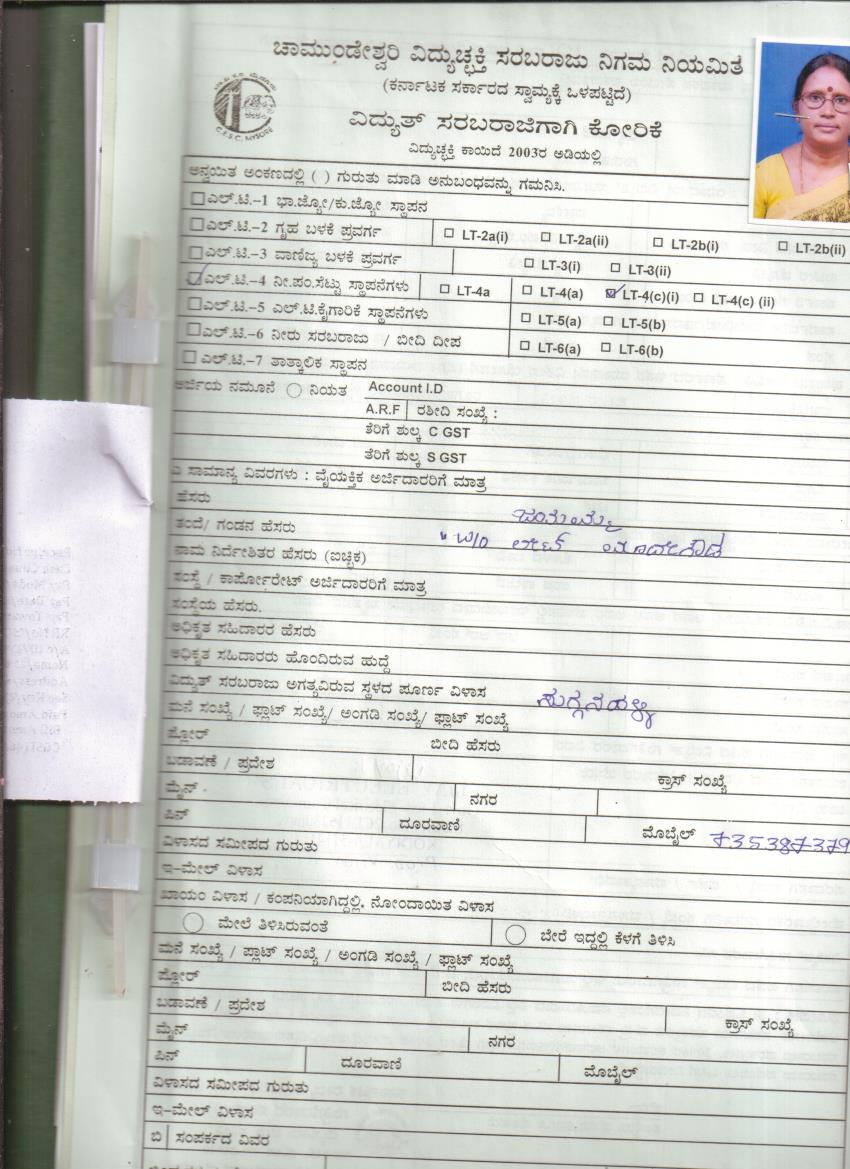 ಚಾಮುಂಡೇಶ್ವರಿ ವಿದ್ಯುಚ್ಛಕ್ತಿ ಸರಬರಾಜು ನಿಗಮ ನಿಯಮಿತ
(ಕರ್ನಾಟಕ ಸರ್ಕಾರದ ಸ್ವಾಮ್ಯಕ್ಕೆ ಒಳಪಟ್ಟಿದೆ)
C.E.S.C, MYSORE
ವಿದ್ಯುತ್ ಸರಬರಾಜಿಗಾಗಿ ಕೋರಿಕೆ
ವಿದ್ಯುಚ್ಛಕ್ತಿ ಕಾಯಿದೆ 2003ರ ಅಡಿಯಲ್ಲಿ
ಅನ್ವಯಿತ ಅಂಕಣದಲ್ಲಿ ( ) ಗುರುತು ಮಾಡಿ ಅನುಬಂಧವನ್ನು ಗಮನಿಸಿ.
ಎಲ್.ಟಿ.-1 ಭಾ.ಜ್ಯೋ/ಕು.ಜ್ಯೋ ಸ್ಥಾಪನ
ಎಲ್.ಟಿ.-2 ಗೃಹ ಬಳಕೆ ಪ್ರವರ್ಗ LT-2a(i) LT-2a(ii) LT-2b(i) LT-2b(ii)
ಎಲ್.ಟಿ.-3 ವಾಣಿಜ್ಯ ಬಳಕೆ ಪ್ರವರ್ಗ LT-3(i) LT-3(ii)
ಎಲ್.ಟಿ.-4 ನೀ.ಪಂ.ಸೆಟ್ಟು ಸ್ಥಾಪನೆಗಳು LT-4a LT-4(a) LT-4(c)(i) LT-4(c) (ii)
ಎಲ್.ಟಿ.-5 ಎಲ್.ಟಿ.ಕೈಗಾರಿಕೆ ಸ್ಥಾಪನೆಗಳು LT-5(a) LT-5(b)
ಎಲ್.ಟಿ.-6 ನೀರು ಸರಬರಾಜು / ಬೀದಿ ದೀಪ LT-6(a) LT-6(b)
ಎಲ್.ಟಿ.-7 ತಾತ್ಕಾಲಿಕ ಸ್ಥಾಪನ
ಅರ್ಜಿಯ ನಮೂನೆ ನಿಯತ Account I.D
A.R.F ರಶೀದಿ ಸಂಖ್ಯೆ :
ತೆರಿಗೆ ಶುಲ್ಕ C GST
ತೆರಿಗೆ ಶುಲ್ಕ S GST
ಎ ಸಾಮಾನ್ಯ ವಿವರಗಳು : ವೈಯಕ್ತಿಕ ಅರ್ಜಿದಾರರಿಗೆ ಮಾತ್ರ
ಹೆಸರು
ತಂದೆ/ ಗಂಡನ ಹೆಸರು ಜಯಮ್ಮ
ನಾಮ ನಿರ್ದೇಶಿತರ ಹೆಸರು (ಐಚ್ಛಿಕ) W/o ಲೇಟ್
ಸಂಸ್ಥೆ / ಕಾರ್ಪೋರೇಟ್ ಅರ್ಜಿದಾರರಿಗೆ ಮಾತ್ರ
ಸಂಸ್ಥೆಯ ಹೆಸರು.
ಅಧಿಕೃತ ಸಹಿದಾರರ ಹೆಸರು
ಅಧಿಕೃತ ಸಹಿದಾರರು ಹೊಂದಿರುವ ಹುದ್ದೆ
ವಿದ್ಯುತ್ ಸರಬರಾಜು ಅಗತ್ಯವಿರುವ ಸ್ಥಳದ ಪೂರ್ಣ ವಿಳಾಸ ಸುಗ್ಗನಹಳ್ಳಿ
ಮನೆ ಸಂಖ್ಯೆ / ಫ್ಲಾಟ್ ಸಂಖ್ಯೆ/ ಅಂಗಡಿ ಸಂಖ್ಯೆ/ ಫ್ಲಾಟ್ ಸಂಖ್ಯೆ
ಫ್ಲೋರ್ ಬೀದಿ ಹೆಸರು
ಬಡಾವಣೆ / ಪ್ರದೇಶ ಕ್ರಾಸ್ ಸಂಖ್ಯೆ
ಮೈನ್ ನಗರ
ಪಿನ್ ದೂರವಾಣಿ ಮೊಬೈಲ್ 735387379
ವಿಳಾಸದ ಸಮೀಪದ ಗುರುತು
ಇ-ಮೇಲ್ ವಿಳಾಸ
ಖಾಯಂ ವಿಳಾಸ / ಕಂಪನಿಯಾಗಿದ್ದಲ್ಲಿ, ನೋಂದಾಯಿತ ವಿಳಾಸ
ಮೇಲೆ ತಿಳಿಸಿರುವಂತೆ ಬೇರೆ ಇದ್ದಲ್ಲಿ ಕೆಳಗೆ ತಿಳಿಸಿ
ಮನೆ ಸಂಖ್ಯೆ / ಪ್ಲಾಟ್ ಸಂಖ್ಯೆ / ಅಂಗಡಿ ಸಂಖ್ಯೆ / ಫ್ಲಾಟ್ ಸಂಖ್ಯೆ
ಫ್ಲೋರ್ ಬೀದಿ ಹೆಸರು
ಬಡಾವಣೆ / ಪ್ರದೇಶ ಕ್ರಾಸ್ ಸಂಖ್ಯೆ
ಮೈನ್ ನಗರ
ಪಿನ್ ದೂರವಾಣಿ ಮೊಬೈಲ್
ವಿಳಾಸದ ಸಮೀಪದ ಗುರುತು
ಇ-ಮೇಲ್ ವಿಳಾಸ
ಬಿ ಸಂಪರ್ಕದ ವಿವರ